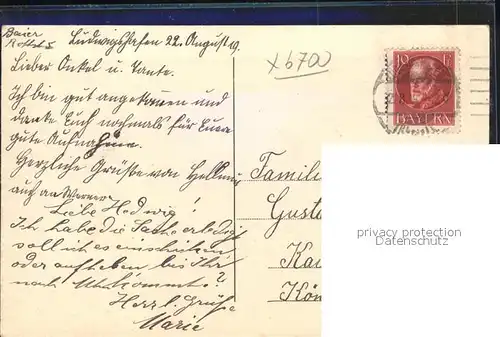 Baier
Ludwigshafen 22. August 19.
x 6700
Lieber Onkel u. Tante.
Ich bin gut angekommen und
danke Euch nochmals für Eure
gute Aufnahme.
Herzliche Grüße von Hellmu
auch an Werner
Liebe Hedwig!
Ich habe die Sache erledigt
soll ich es einschicken
oder aufheben bis Ihr
nach kommt?
Herzl. Grüße
Marie
10 PF
BAYERN
Famili
Gusta
Kai
Kön
PRIVATARCHIV
DARABANTH.COM